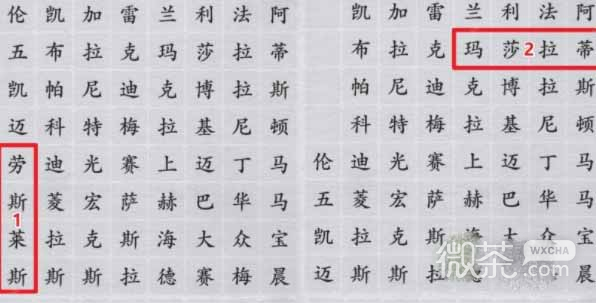 伦凯加雷兰利法阿
五布拉克玛莎拉蒂
凯帕尼迪克博拉斯
迈科特梅拉基尼顿
劳迪光赛上迈丁马
斯菱宏萨赫巴华马
莱拉克斯海大众宝
斯斯斯拉德赛梅晨
1
凯加雷兰利法阿
布拉克玛莎拉蒂
2
帕尼迪克博拉斯
科特梅拉基尼顿
伦迪光赛上迈丁马
五菱宏萨赫巴华马
凯拉克斯海大众宝
迈斯斯拉德赛梅晨
微茶
WXCHA
.COM